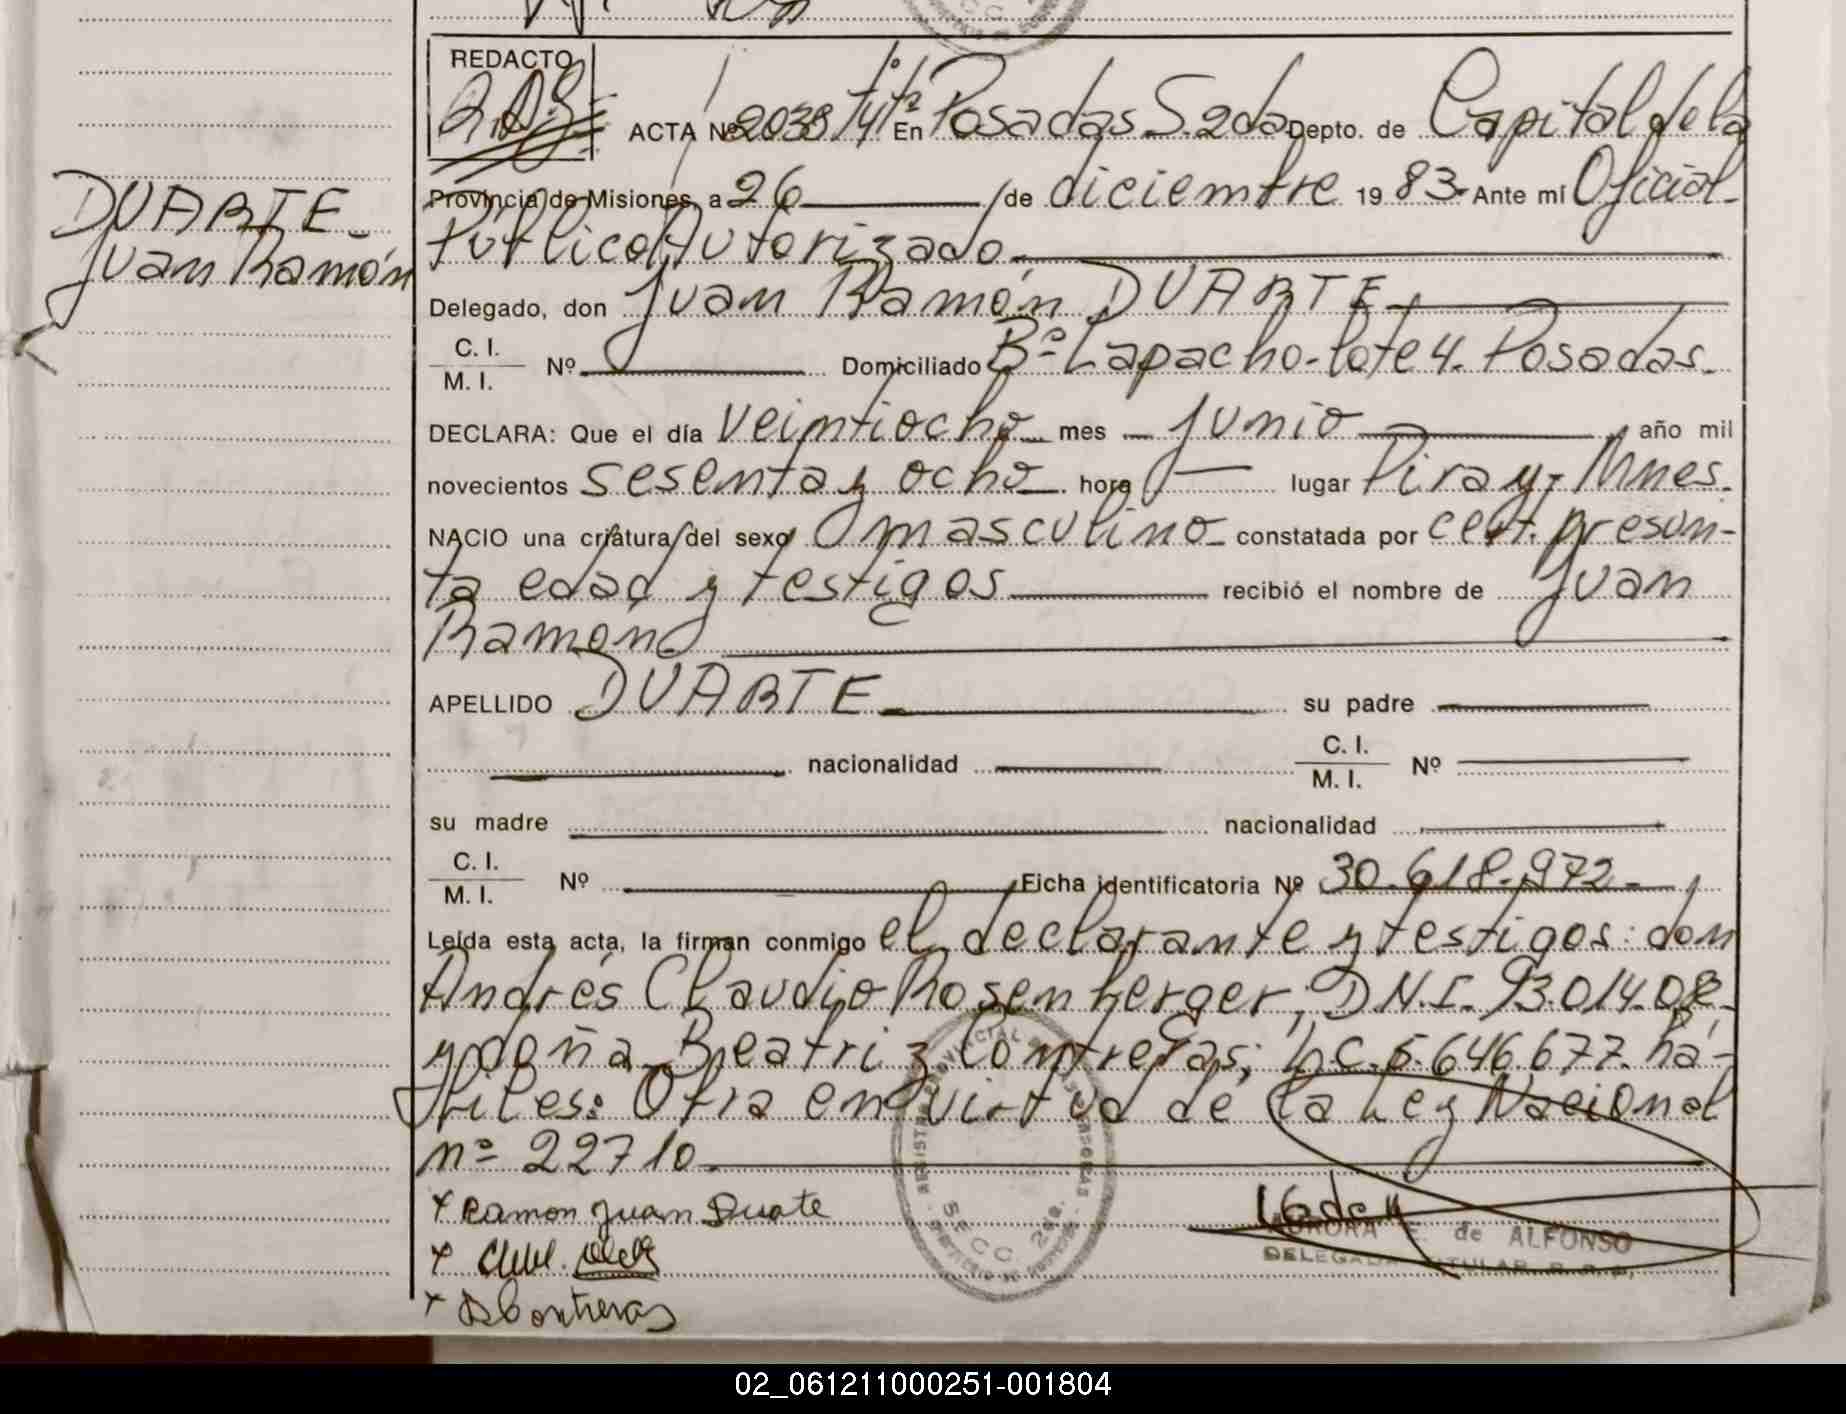 REDACTO
ACTA Nº 2038 Tº 4tº En Posadas S. 2da Depto. de Capital de la
Provincia de Misiones, a 26 de diciembre 1983 Ante mi Oficial
Público Autorizado
DUARTE
Juan Ramón
Delegado, don Juan Ramón DUARTE
C. I.
M. I. Nº Domiciliado Bº Lapacho-lote 4. Posadas.
DECLARA: Que el día veintiocho mes junio año mil
novecientos sesenta y ocho hora lugar Piray-Mnes.
NACIO una criatura del sexo masculino constatada por cert. presun-
ta edad y testigos recibió el nombre de Juan
Ramón
APELLIDO DUARTE su padre
nacionalidad C. I.
M. I. Nº
su madre nacionalidad
C. I.
M. I. Nº Ficha identificatoria Nº 30.618.972
Leída esta acta, la firman conmigo el declarante y testigos: don
Andrés Claudio Rosenberger, D.N.I. 93.014.08
y doña Beatriz Contreras; L.C. 5.646.677. há-
biles: Ofra en virtud de la Ley Nacional
nº 22710.
x Ramon Juan Duate
x
x B Contreras
SECC. 2da.
E. de ALFONSO
DELEGADA TITULAR R.C.P.
02_061211000251-001804